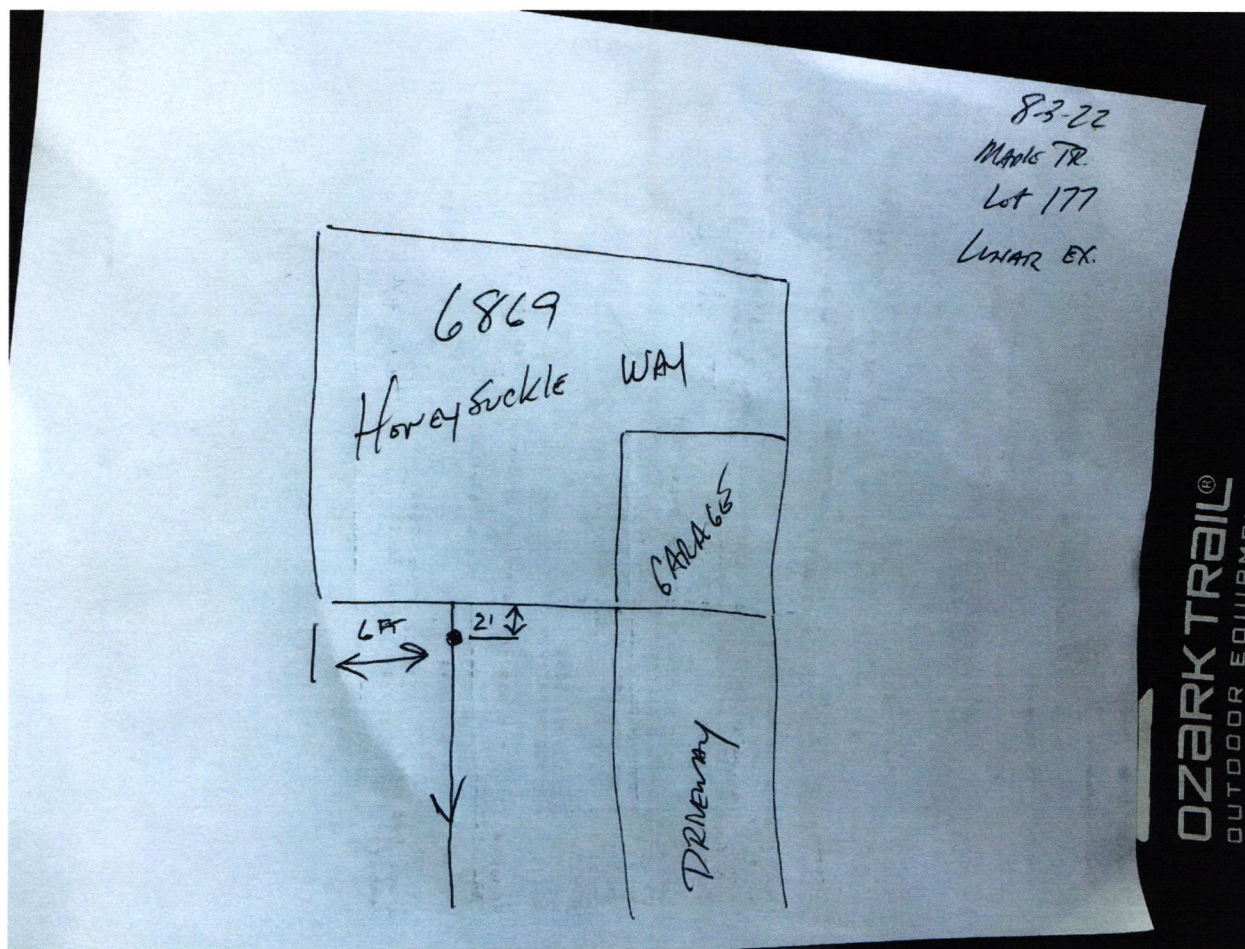 8-3-22
MAPLE TR.
Lot 177
LUNAR EX.
6869
HoneySuckle WAY
GARAGE
6 FT
2'
DRIVEWAY
OZARK TRAIL®
OUTDOOR EQUIPME